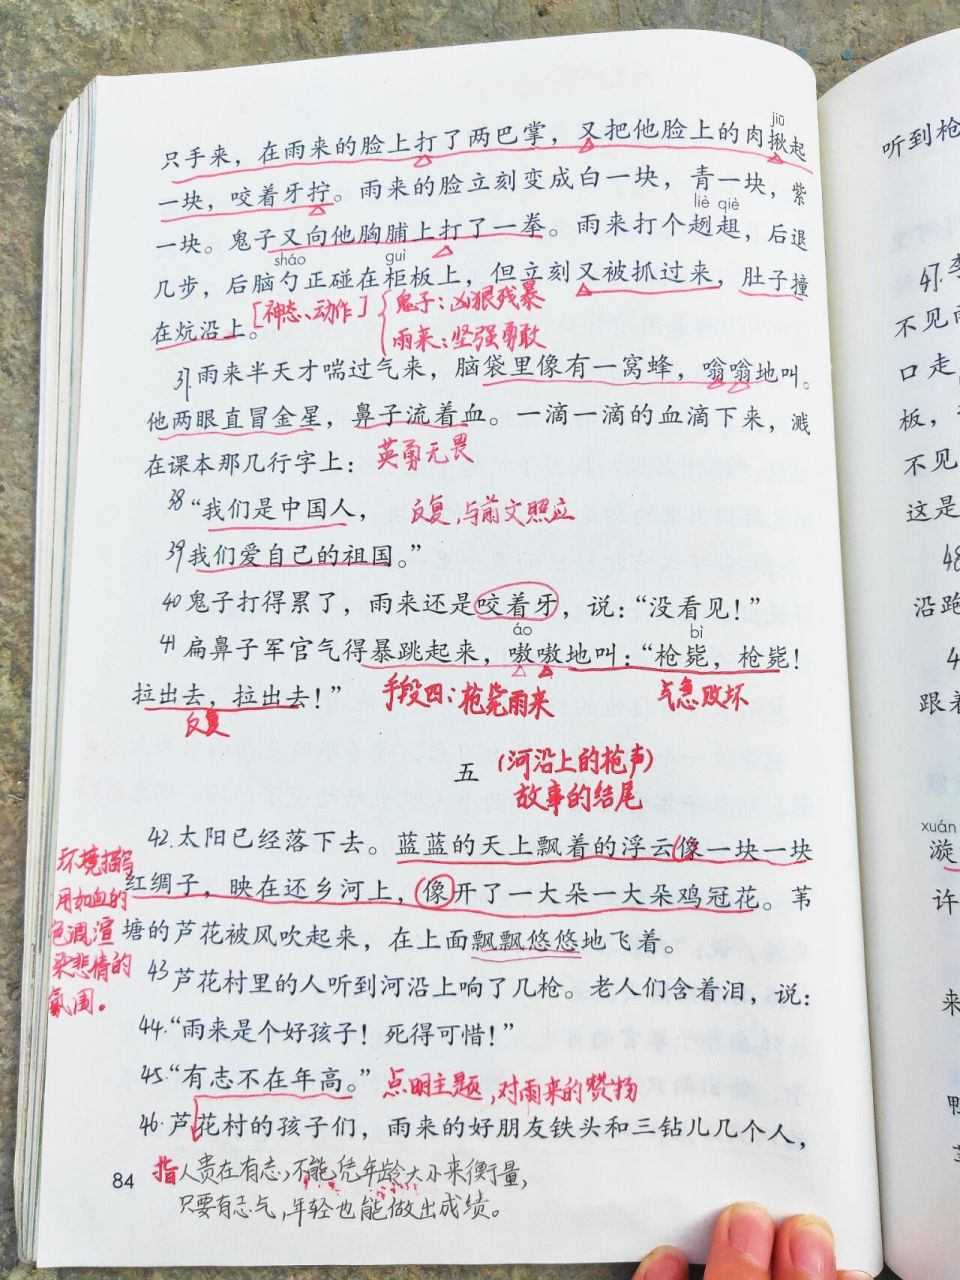 jiū
只手来，在雨来的脸上打了两巴掌，又把他脸上的肉揪起
一块，咬着牙拧。雨来的脸立刻变成白一块，青一块，紫
liè qiè
一块。鬼子又向他胸脯上打了一拳。雨来打个趔趄，后退
sháo guì
几步，后脑勺正碰在柜板上，但立刻又被抓过来，肚子撞
在炕沿上。[神态、动作]
鬼子：凶狠残暴
雨来：坚强勇敢
37雨来半天才喘过气来，脑袋里像有一窝蜂，嗡嗡地叫。
他两眼直冒金星，鼻子流着血。一滴一滴的血滴下来，溅
在课本那几行字上： 英勇无畏
38“我们是中国人， 反复，与前文照应
39我们爱自己的祖国。”
40鬼子打得累了，雨来还是咬着牙，说：“没看见！”
áo bì
41扁鼻子军官气得暴跳起来，嗷嗷地叫：“枪毙，枪毙！
拉出去，拉出去！” 手段四：枪毙雨来 气急败坏
反复
五 （河沿上的枪声）
故事的结尾
42.太阳已经落下去。蓝蓝的天上飘着的浮云像一块一块
红绸子，映在还乡河上，像开了一大朵一大朵鸡冠花。苇
塘的芦花被风吹起来，在上面飘飘悠悠地飞着。
环境描写
用如血的
色调渲
染悲情的
氛围。
43芦花村里的人听到河沿上响了几枪。老人们含着泪，说：
44.“雨来是个好孩子！死得可惜！”
45.“有志不在年高。” 点明主题，对雨来的赞扬
46.芦花村的孩子们，雨来的好朋友铁头和三钻儿几个人，
指人贵在有志，不能凭年龄大小来衡量，
84
只要有志气，年轻也能做出成绩。
听到枪
47.李
不见雨
口走
板，
不见
这是
48
沿跑
4
跟着
xuán
漩
许
来
鸭